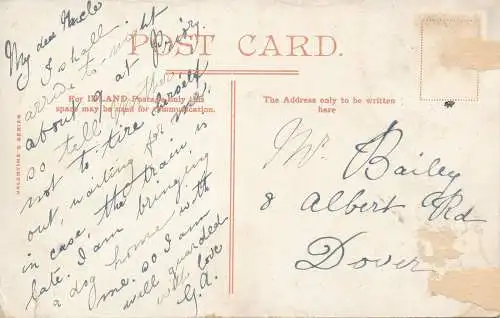 POST CARD.
For INLAND Postage only this
space may be used for communication.
The Address only to be written
here
VALENTINE'S SERIES
My dear Uncle
I shall
arrive to-night
about 9 at Priory
so tell
not to tire herself
out, waiting for me!
in case, the train, is
late. I am bringing
a dog home with
me. so I am
well guarded
with love
G.A.
Mr. Bailey
8 Albert Rd
Dover